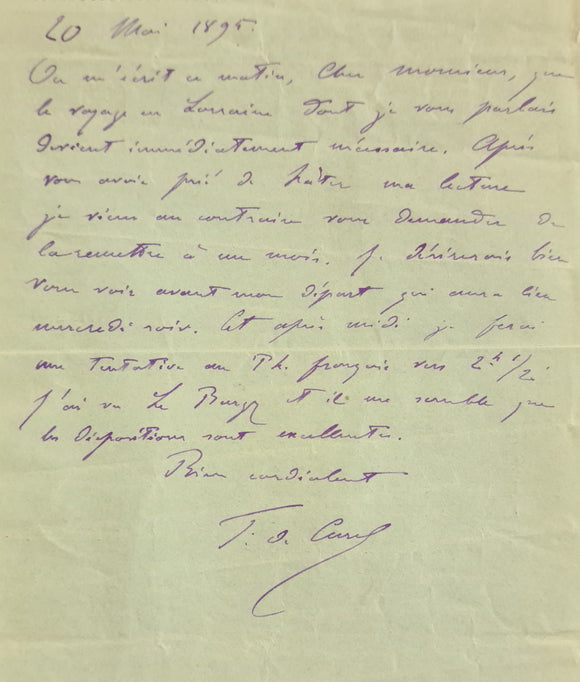 20 Mai 1895.
On m'écrit ce matin, cher monsieur, que
le voyage en Lorraine dont je vous parlais
devient immédiatement nécessaire. Après
vous avoir prié de hâter ma lecture
je viens au contraire vous demander de
la remettre à un mois. Je désirerais bien
vous voir avant mon départ qui aura lieu
mercredi soir. Cet après midi je ferai
une tentative au Th. français vers 2h 1/2.
J'ai vu Le Bargy et il me semble que
les dispositions sont excellentes.
Bien cordialement
F. de Curel